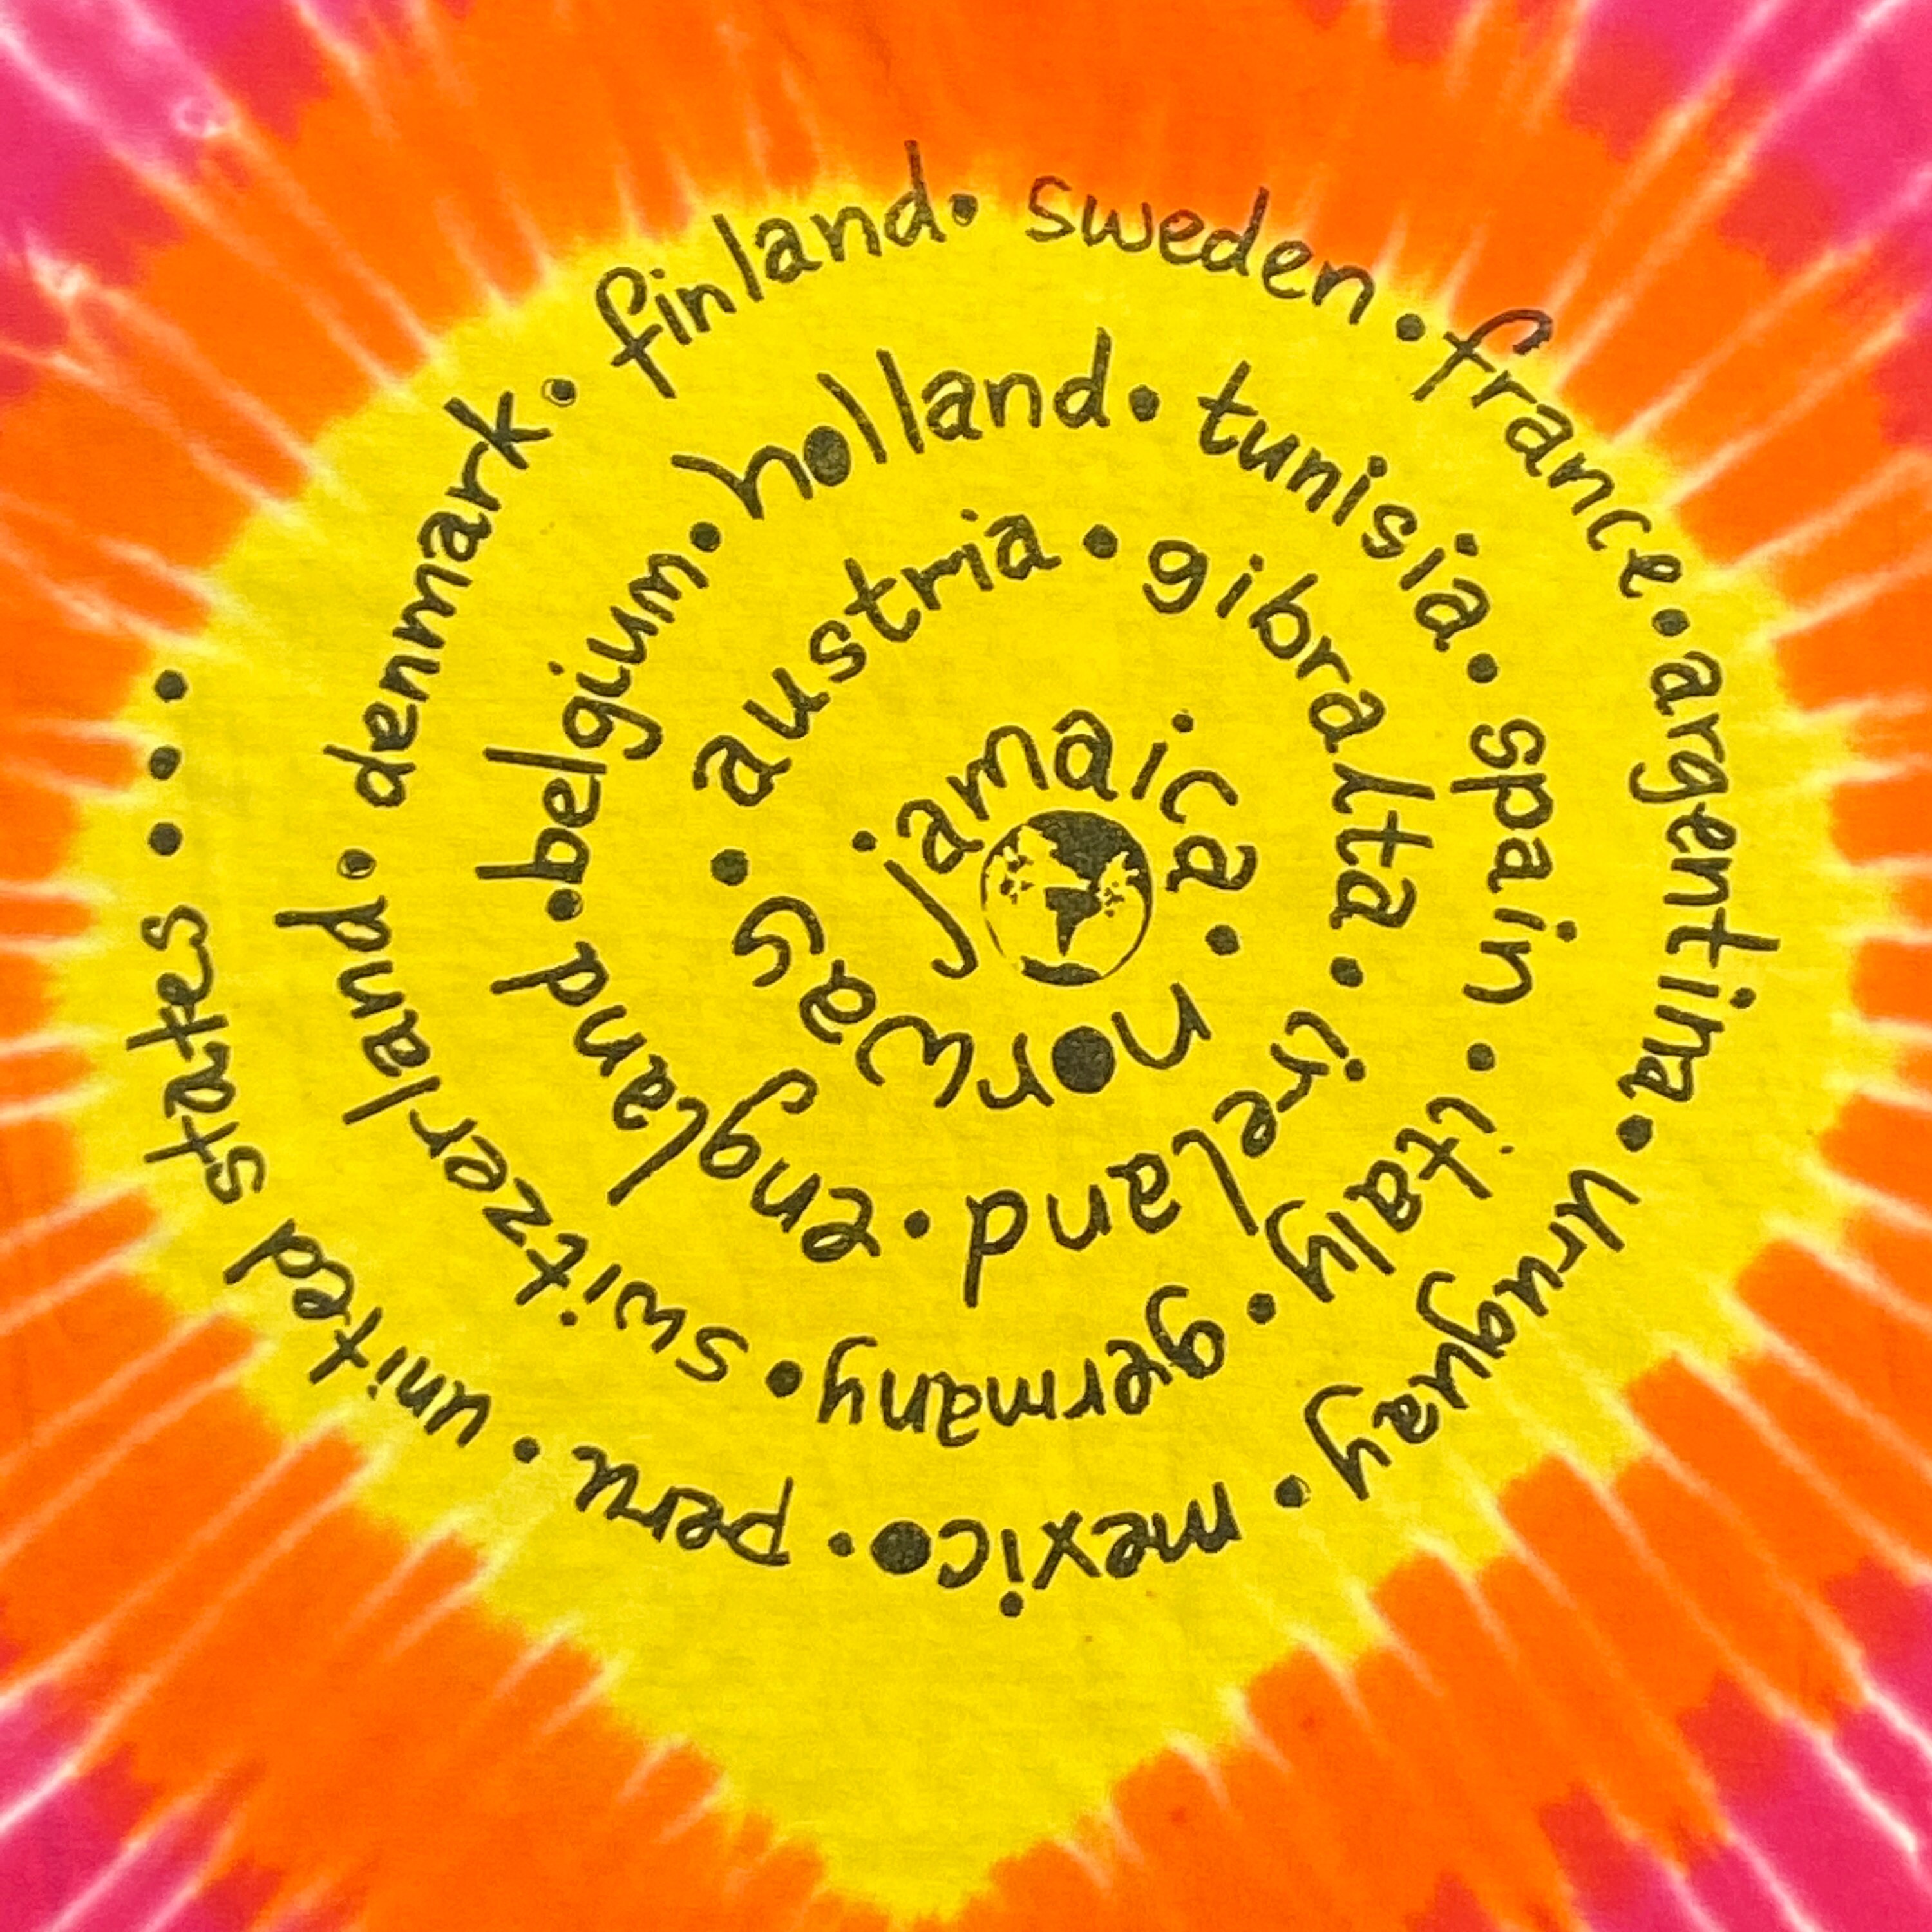 • jamaica • norway • austria • gibralta • ireland • england • belgium • holland • tunisia • spain • italy • germany • switzerland • denmark • finland • sweden • france • argentina • uruguay • mexico • peru • united states •••